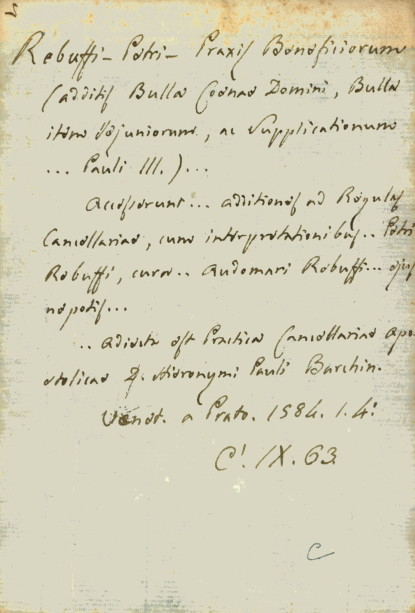 Rebuffi - Petri - Praxis Beneficiorum
(additis Bulla Coenae Domini, Bulla
item Jejuniorum, ac Supplicationum
... Pauli III.)...
Accesserunt... additiones ad Regulas
Cancellariae, cum interpretationibus.. Petri
Rebuffi, cura.. Audomari Rebuffi... ejus
nepotis...
.. adiecta est Practica Cancellariae Apo-
stolicae D. Hieronymi Pauli Barchin.
Venet. a Prato. 1584. 1. 4:
C'. IX. 63.
C